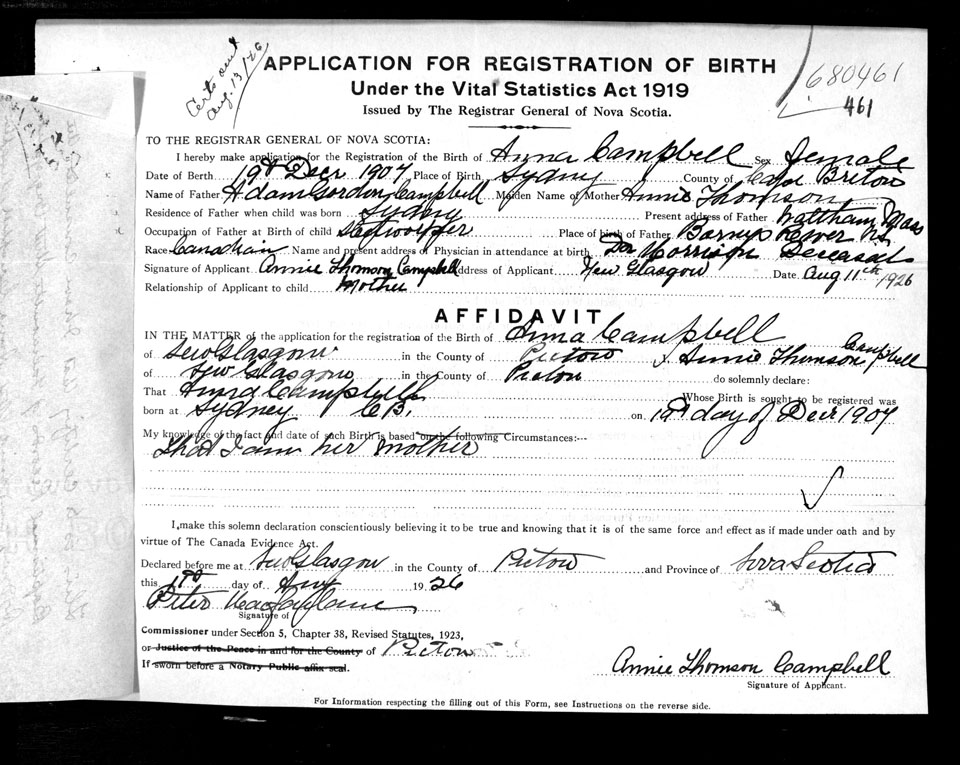 Certs sent
Aug. 13/26
680461
461
APPLICATION FOR REGISTRATION OF BIRTH
Under the Vital Statistics Act 1919
Issued by The Registrar General of Nova Scotia.
TO THE REGISTRAR GENERAL OF NOVA SCOTIA:
I hereby make application for the Registration of the Birth of Anna Campbell Sex Female
Date of Birth 19th Decr 1907 Place of Birth Sydney County of Cape Breton
Name of Father Adam Gordon Campbell Maiden Name of Mother Annie Thomson
Residence of Father when child was born Sydney Present address of Father Waltham, Mass
Occupation of Father at Birth of child Place of birth of Father Barneys River N.S.
Race Canadian Name and present address of Physician in attendance at birth Morrison Deceased
Signature of Applicant Annie Thomson Campbell Address of Applicant New Glasgow Date Aug 11th 1926
Relationship of Applicant to child Mother
AFFIDAVIT
IN THE MATTER of the application for the registration of the Birth of Anna Campbell
of New Glasgow in the County of Pictou I, Annie Thomson Campbell
of New Glasgow in the County of Pictou do solemnly declare:
That Anna Campbell Whose Birth is sought to be registered was
born at Sydney C.B. on 19th day of Decr 1907
My knowledge of the fact and date of such Birth is based on the following Circumstances:--
that I am her mother
I make this solemn declaration conscientiously believing it to be true and knowing that it is of the same force and effect as if made under oath and by
virtue of The Canada Evidence Act.
Declared before me at New Glasgow in the County of Pictou and Province of Nova Scotia
this day of Aug 1926
Peter
Signature of
Commissioner under Section 5, Chapter 38, Revised Statutes, 1923,
or Justice of the Peace in and for the County of Pictou
If sworn before a Notary Public affix seal.
Annie Thomson Campbell
Signature of Applicant.
For Information respecting the filling out of this Form, see Instructions on the reverse side.